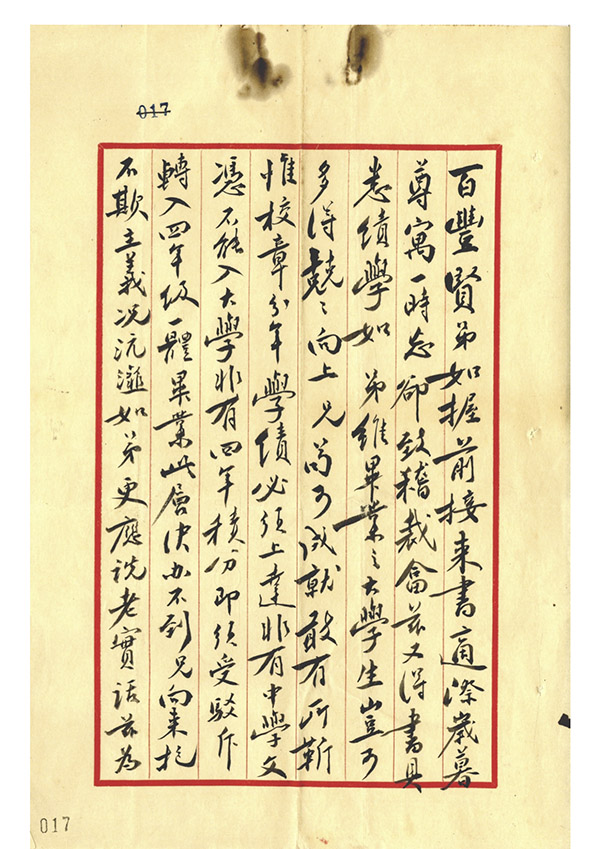 017
百豐賢弟如握前接來書適際歲暮
尊寓一時忘卻致稽裁畣茲又得書具
悉績學如 弟雖畢業之大學生豈可
多得兢〻向上兄苟可成就敢有所靳
惟校章分年學績必須上達非有中學文
憑不能入大學非有四年積分即須受駁斥
轉入四年級一體畢業此層決办不到兄向來抱
不欺主義况沆瀣如弟更應說老實話茲為
017